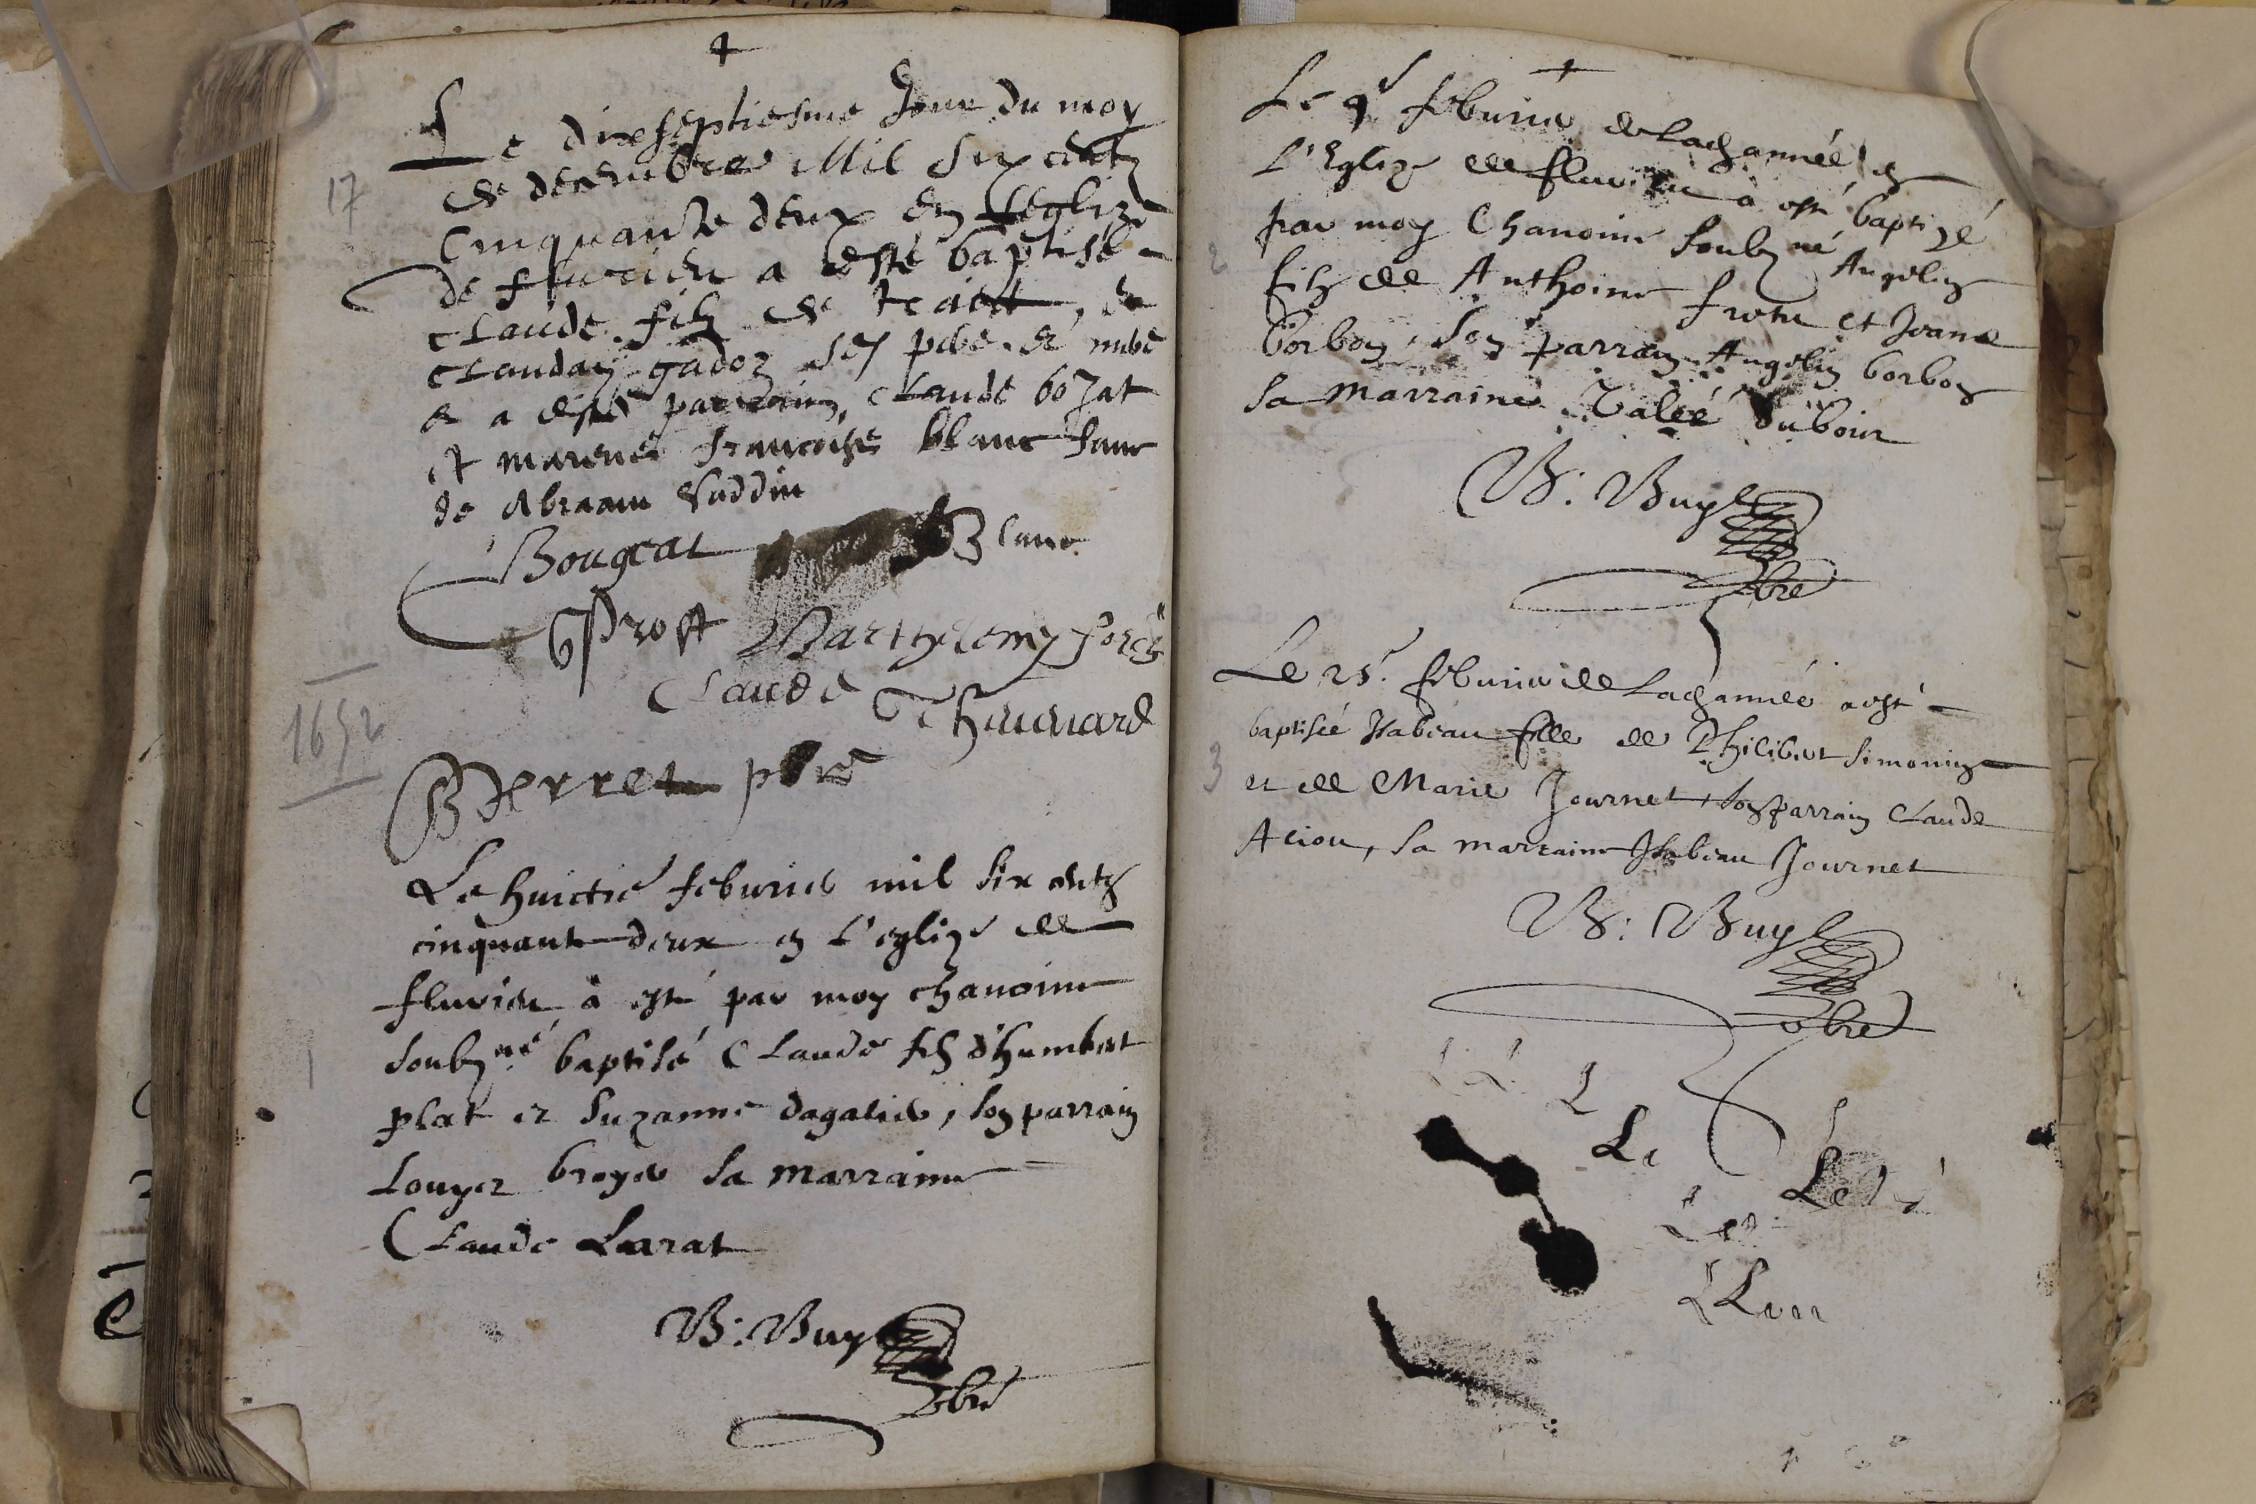 Le dixseptiesme Jour du moy
17
de decembre Mil Six centz
Cinquante deux en leglize
de fluvieu a esté baptisé
Claude filz de
Clauday gadoz ses pere et mere
et a esté parrain Claude bozat
et marene françoise blanc fame
de Abraam
Bougeat Blanc
Prost Barthelemy
Claude Thevenard
1652
Berret pbre
Le huictie feburier mil six centz
cinquante deux en L'eglize de
fluvieu à esté par moy chanoine
1
soubzné baptisé Claude filz d'humbert
plat et Suzanne dagalier, son parrain
Louyez broyer sa marraine
Claude Larat
B: Buy
pbre
Le 9e feburier de lad année en
L'Eglize de fluvieu à esté baptizé
par moy Chanoine soubzné Angelin
2
filz de Anthoine et Joane
borbon, son parrain Angelin borbon
sa marraine duboix
B: Buy
pbre
Le 25e feburier de lad année a esté
baptisée Isabeau fille de Philibert Simonin
3
et de Marie Journet, son parrain Claude
Aciou, sa marraine Isabeau Journet
B: Buy
pbre
L L L
Le
Le
Le